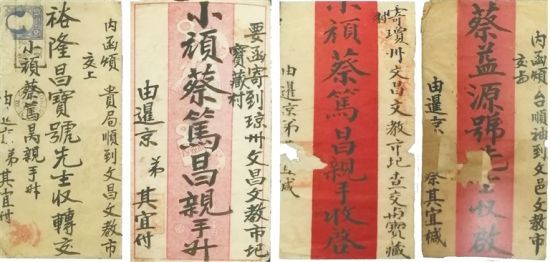 內函煩 貴局順到文昌文教市
交上
裕隆昌寶號先生收轉交
小頑蔡篤昌親手升
由 弟 其宜付
要函寄到琼州文昌文教市圯
寶藏村
小頑蔡篤昌親手升
由暹京 弟 其宜付
寄瓊州文昌文教市圯查交 寶藏
小頑蔡篤昌親手收啓
由暹京弟
內函煩 台順袖到文邑文教市
蔡益源號先生收啟
由暹京 蔡其宜緘